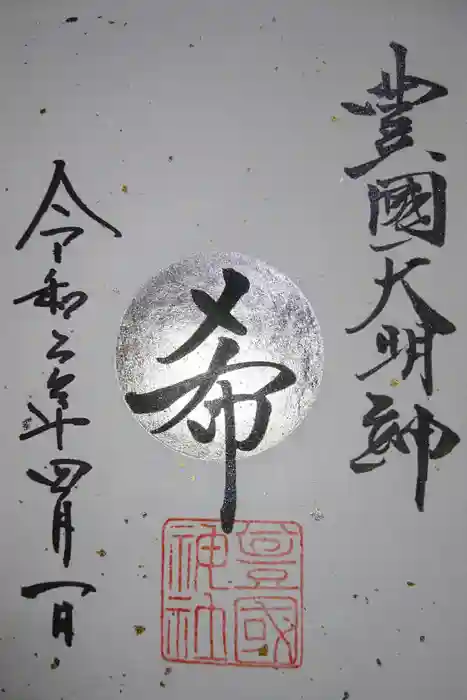 豊國大明神
希
豊國神社
令和六年四月一日